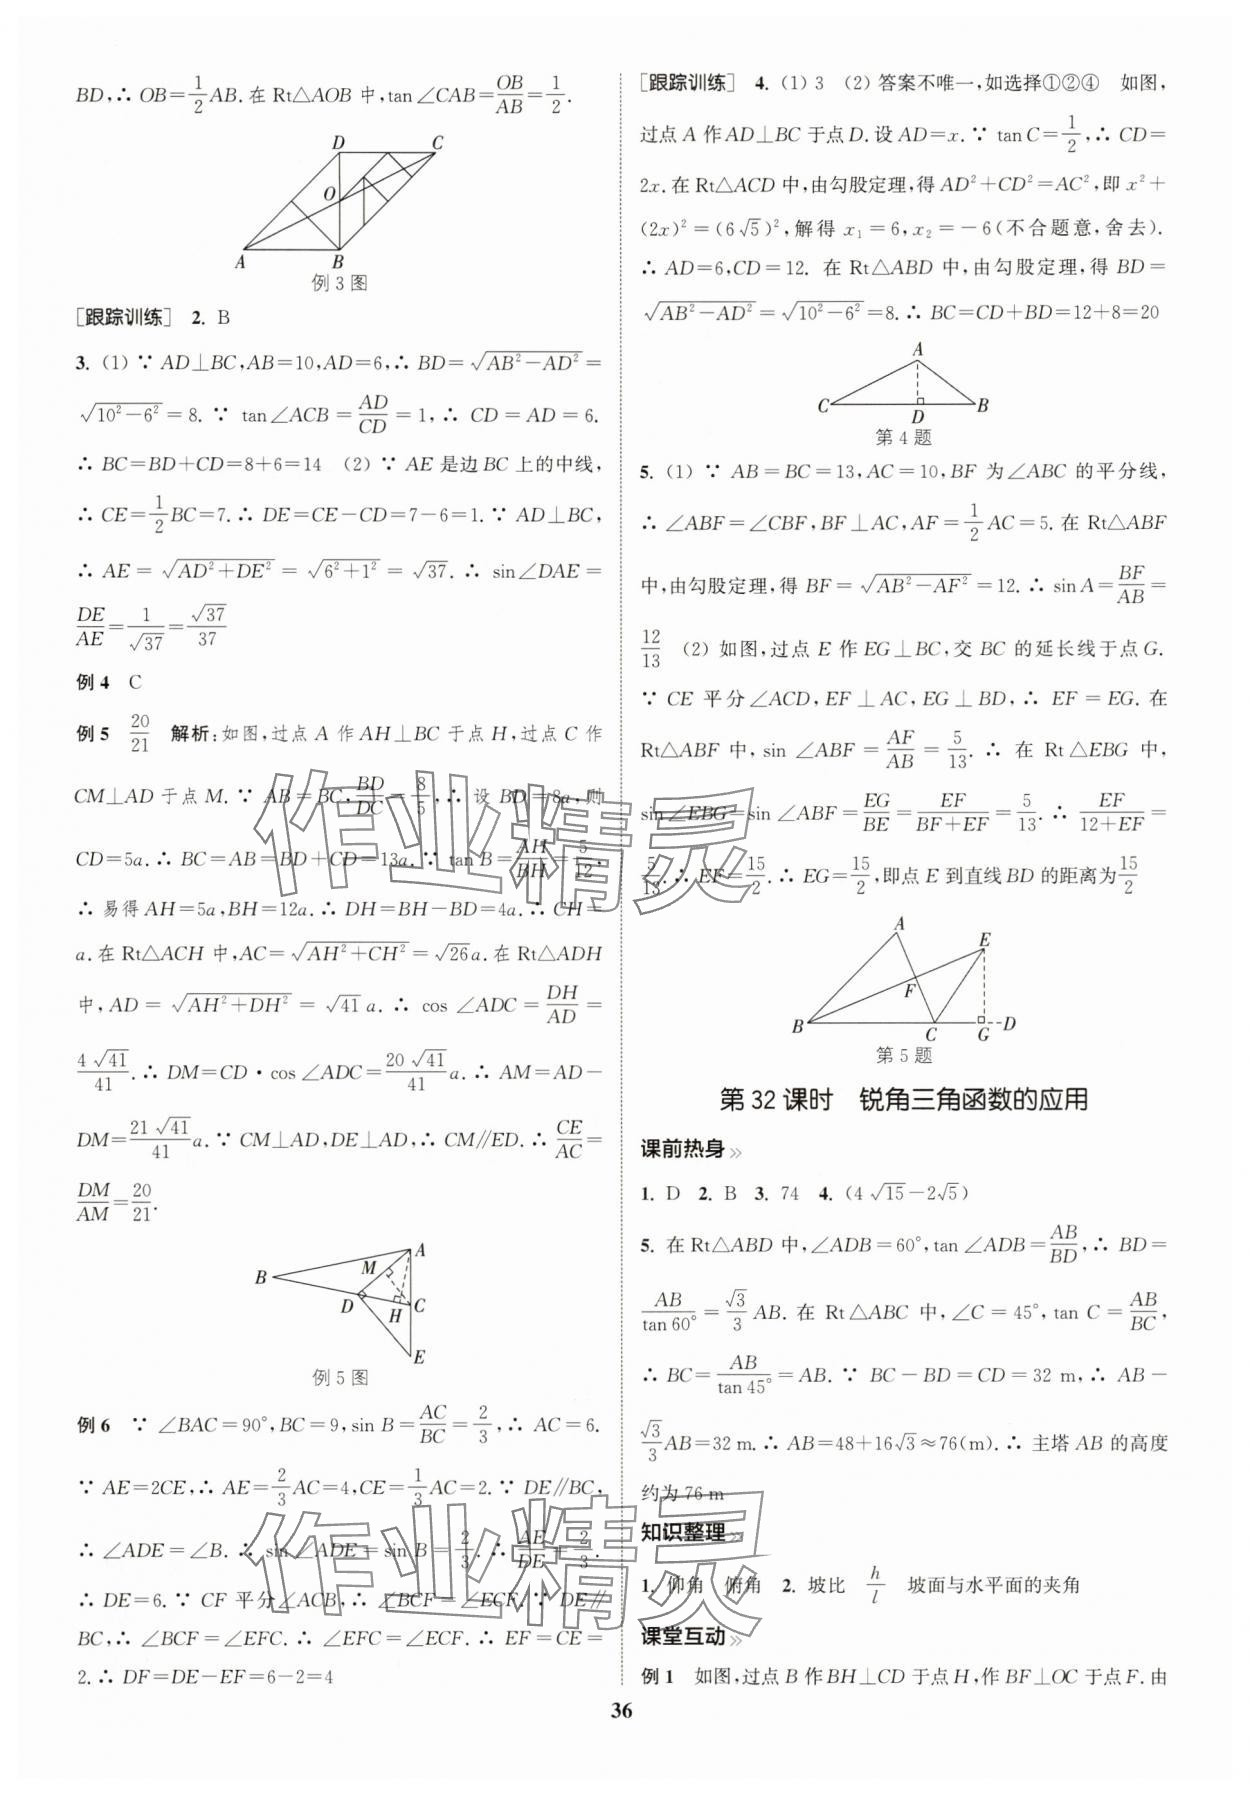 BD,∴ OB=1/2AB.在Rt△AOB中,tan∠CAB=OB/AB=1/2.
D C
O
A B
例3图
[跟踪训练] 2. B
3. (1) ∵ AD⊥BC,AB=10,AD=6,∴ BD=√(AB²-AD²)=
√(10²-6²)=8.∵ tan∠ACB=AD/CD=1,∴ CD=AD=6.
∴ BC=BD+CD=8+6=14 (2) ∵ AE是边BC上的中线,
∴ CE=1/2BC=7.∴ DE=CE-CD=7-6=1.∵ AD⊥BC,
∴ AE=√(AD²+DE²)=√(6²+1²)=√37.∴ sin∠DAE=
DE/AE=1/√37=√37/37
例4 C
例5 20/21 解析:如图,过点A作AH⊥BC于点H,过点C作
CM⊥AD于点M.∵ AB=BC,BD/DC=8/5,∴ 设BD=8a,则
CD=5a.∴ BC=AB=BD+CD=13a.∵ tan B=AH/BH=5/12.
∴ 易得AH=5a,BH=12a.∴ DH=BH-BD=4a.∴ CH=
a.在Rt△ACH中,AC=√(AH²+CH²)=√26a.在Rt△ADH
中,AD=√(AH²+DH²)=√41a.∴ cos∠ADC=DH/AD=
4√41/41.∴ DM=CD·cos∠ADC=20√41/41 a.∴ AM=AD-
DM=21√41/41 a.∵ CM⊥AD,DE⊥AD,∴ CM∥ED.∴ CE/AC=
DM/AM=20/21.
A
B M
D H C
E
例5图
例6 ∵ ∠BAC=90°,BC=9,sin B=AC/BC=2/3,∴ AC=6.
∵ AE=2CE,∴ AE=2/3AC=4,CE=1/3AC=2.∵ DE∥BC,
∴ ∠ADE=∠B.∴ sin∠ADE=sin B=2/3.∴ AE/DE=2/3.
∴ DE=6.∵ CF平分∠ACB,∴ ∠BCF=∠ECF.∵ DE∥
BC,∴ ∠BCF=∠EFC.∴ ∠EFC=∠ECF.∴ EF=CE=
2.∴ DF=DE-EF=6-2=4
[跟踪训练] 4. (1) 3 (2) 答案不唯一,如选择①②④ 如图,
过点A作AD⊥BC于点D.设AD=x.∵ tan C=1/2,∴ CD=
2x.在Rt△ACD中,由勾股定理,得AD²+CD²=AC²,即x²+
(2x)²=(6√5)²,解得x₁=6,x₂=-6(不合题意,舍去).
∴ AD=6,CD=12.在Rt△ABD中,由勾股定理,得BD=
√(AB²-AD²)=√(10²-6²)=8.∴ BC=CD+BD=12+8=20
A
C D B
第4题
5. (1) ∵ AB=BC=13,AC=10,BF为∠ABC的平分线,
∴ ∠ABF=∠CBF,BF⊥AC,AF=1/2AC=5.在Rt△ABF
中,由勾股定理,得BF=√(AB²-AF²)=12.∴ sin A=BF/AB=
12/13 (2) 如图,过点E作EG⊥BC,交BC的延长线于点G.
∵ CE平分∠ACD,EF⊥AC,EG⊥BD,∴ EF=EG.在
Rt△ABF中,sin∠ABF=AF/AB=5/13.∴ 在Rt△EBG中,
sin∠EBG=sin∠ABF=EG/BE=EF/(BF+EF)=5/13.∴ EF/(12+EF)=
5/13.∴ EF=15/2.∴ EG=15/2,即点E到直线BD的距离为15/2
A E
F
B C G D
第5题
第32课时 锐角三角函数的应用
课前热身
1. D 2. B 3. 74 4. (4√15-2√5)
5. 在Rt△ABD中,∠ADB=60°,tan∠ADB=AB/BD,∴ BD=
AB/tan60°=√3/3 AB.在Rt△ABC中,∠C=45°,tan C=AB/BC,
∴ BC=AB/tan45°=AB.∵ BC-BD=CD=32 m,∴ AB-
√3/3AB=32 m.∴ AB=48+16√3≈76(m).∴ 主塔AB的高度
约为76 m
知识整理
1. 仰角 俯角 2. 坡比 h/l 坡面与水平面的夹角
课堂互动
例1 如图,过点B作BH⊥CD于点H,作BF⊥OC于点F.由
36
作业精灵
作业精灵